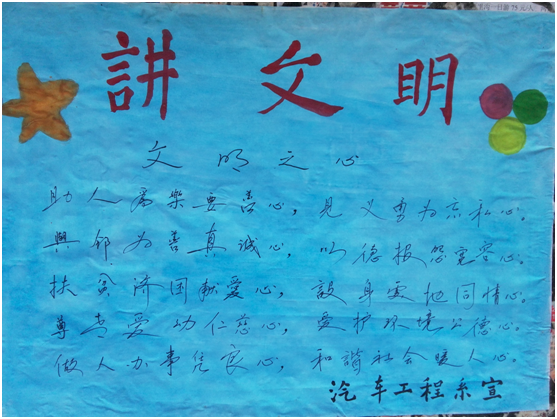 讲文明
文明之心
助人為樂要善心，見义勇为忘私心。
與邻为善真诚心，以德报怨宽容心。
扶贫济困献爱心，設身處地同情心。
尊老爱幼仁慈心，爱护环境公德心。
做人办事凭良心，和諧社会暖人心。
汽车工程系宣